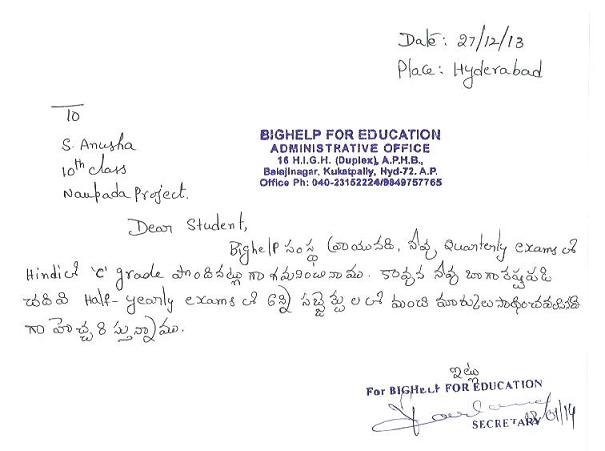 Date: 27/12/13
Place: Hyderabad
To
S. Anusha
10th class
Naupada Project.
BIGHELP FOR EDUCATION
ADMINISTRATIVE OFFICE
16 H.I.G.H. (Duplex), A.P.H.B.,
Balajinagar, Kukatpally, Hyd-72. A.P.
Office Ph: 040-23152224/9849757765
Dear Student,
Bighelp సంస్థ వ్రాయునది, నీవు Quarterly exams లో
Hindi లో 'C' grade పొందినట్లు గా గమనించినాము. కావున నీవు బాగా కష్టపడి
చదివి Half-yearly exams లో అన్ని సబ్జెక్టు లలో మంచి మార్కులు సాధించవలసినది
గా హెచ్చరిస్తున్నాము.
ఇట్లు
For BIGHELP FOR EDUCATION
SECRETARY